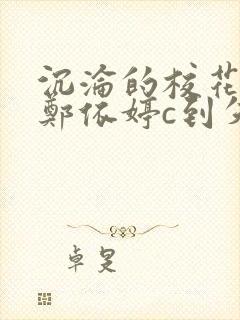 沉淪的校花
鄭依婷c到
卓旻